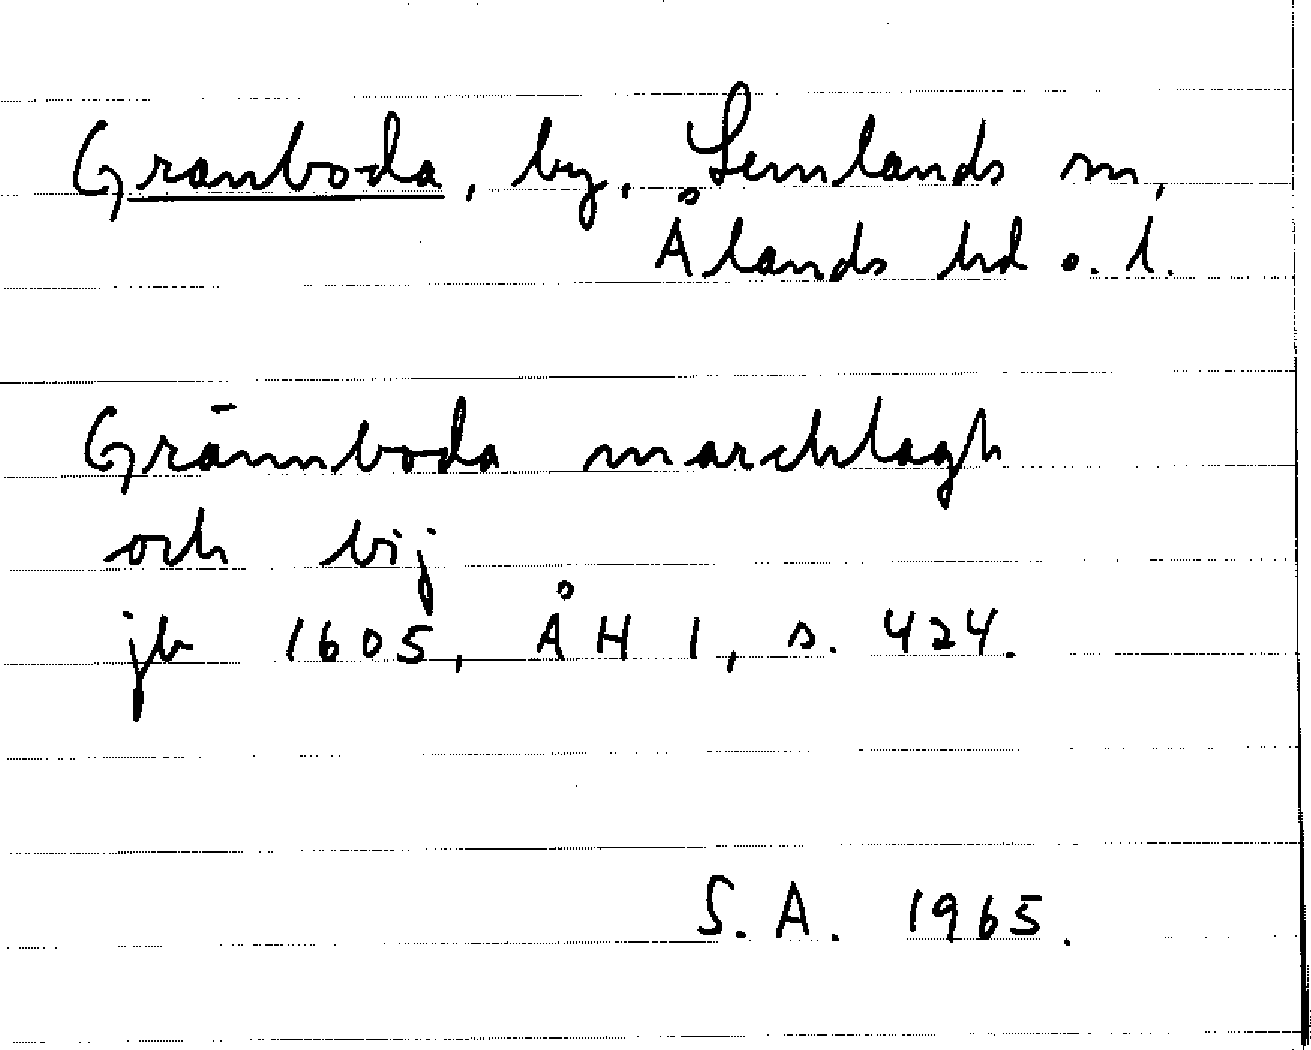 Granboda, by, Lemlands sn,
Ålands hd o. l.
Grännboda marchlagh
och bij
jb 1605, ÅH 1, s. 424.
S. A. 1965.